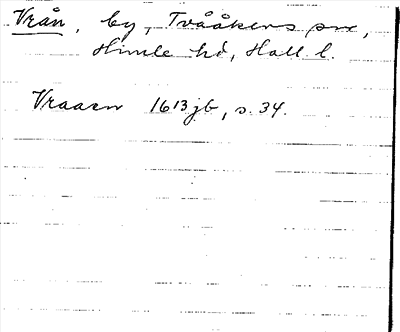 Vrån, by, Tvååkers sn,
Himle hd, Hall. l.
Vraaen 1613 jb, s. 34.